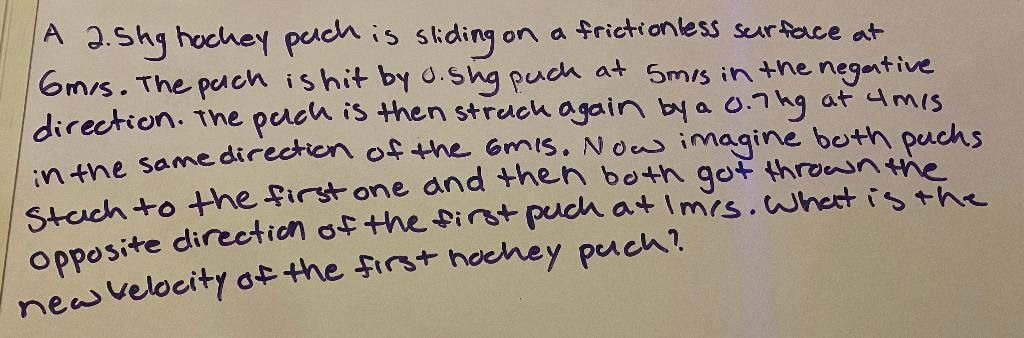 A 2.5kg hockey puck is sliding on a frictionless surface at
6m/s. The puck is hit by 0.5kg puck at 5m/s in the negative
direction. The puck is then struck again by a 0.7kg at 4m/s
in the same direction of the 6m/s. Now imagine both pucks
stuck to the first one and then both got thrown the
opposite direction of the first puck at 1m/s. What is the
new velocity of the first hockey puck?